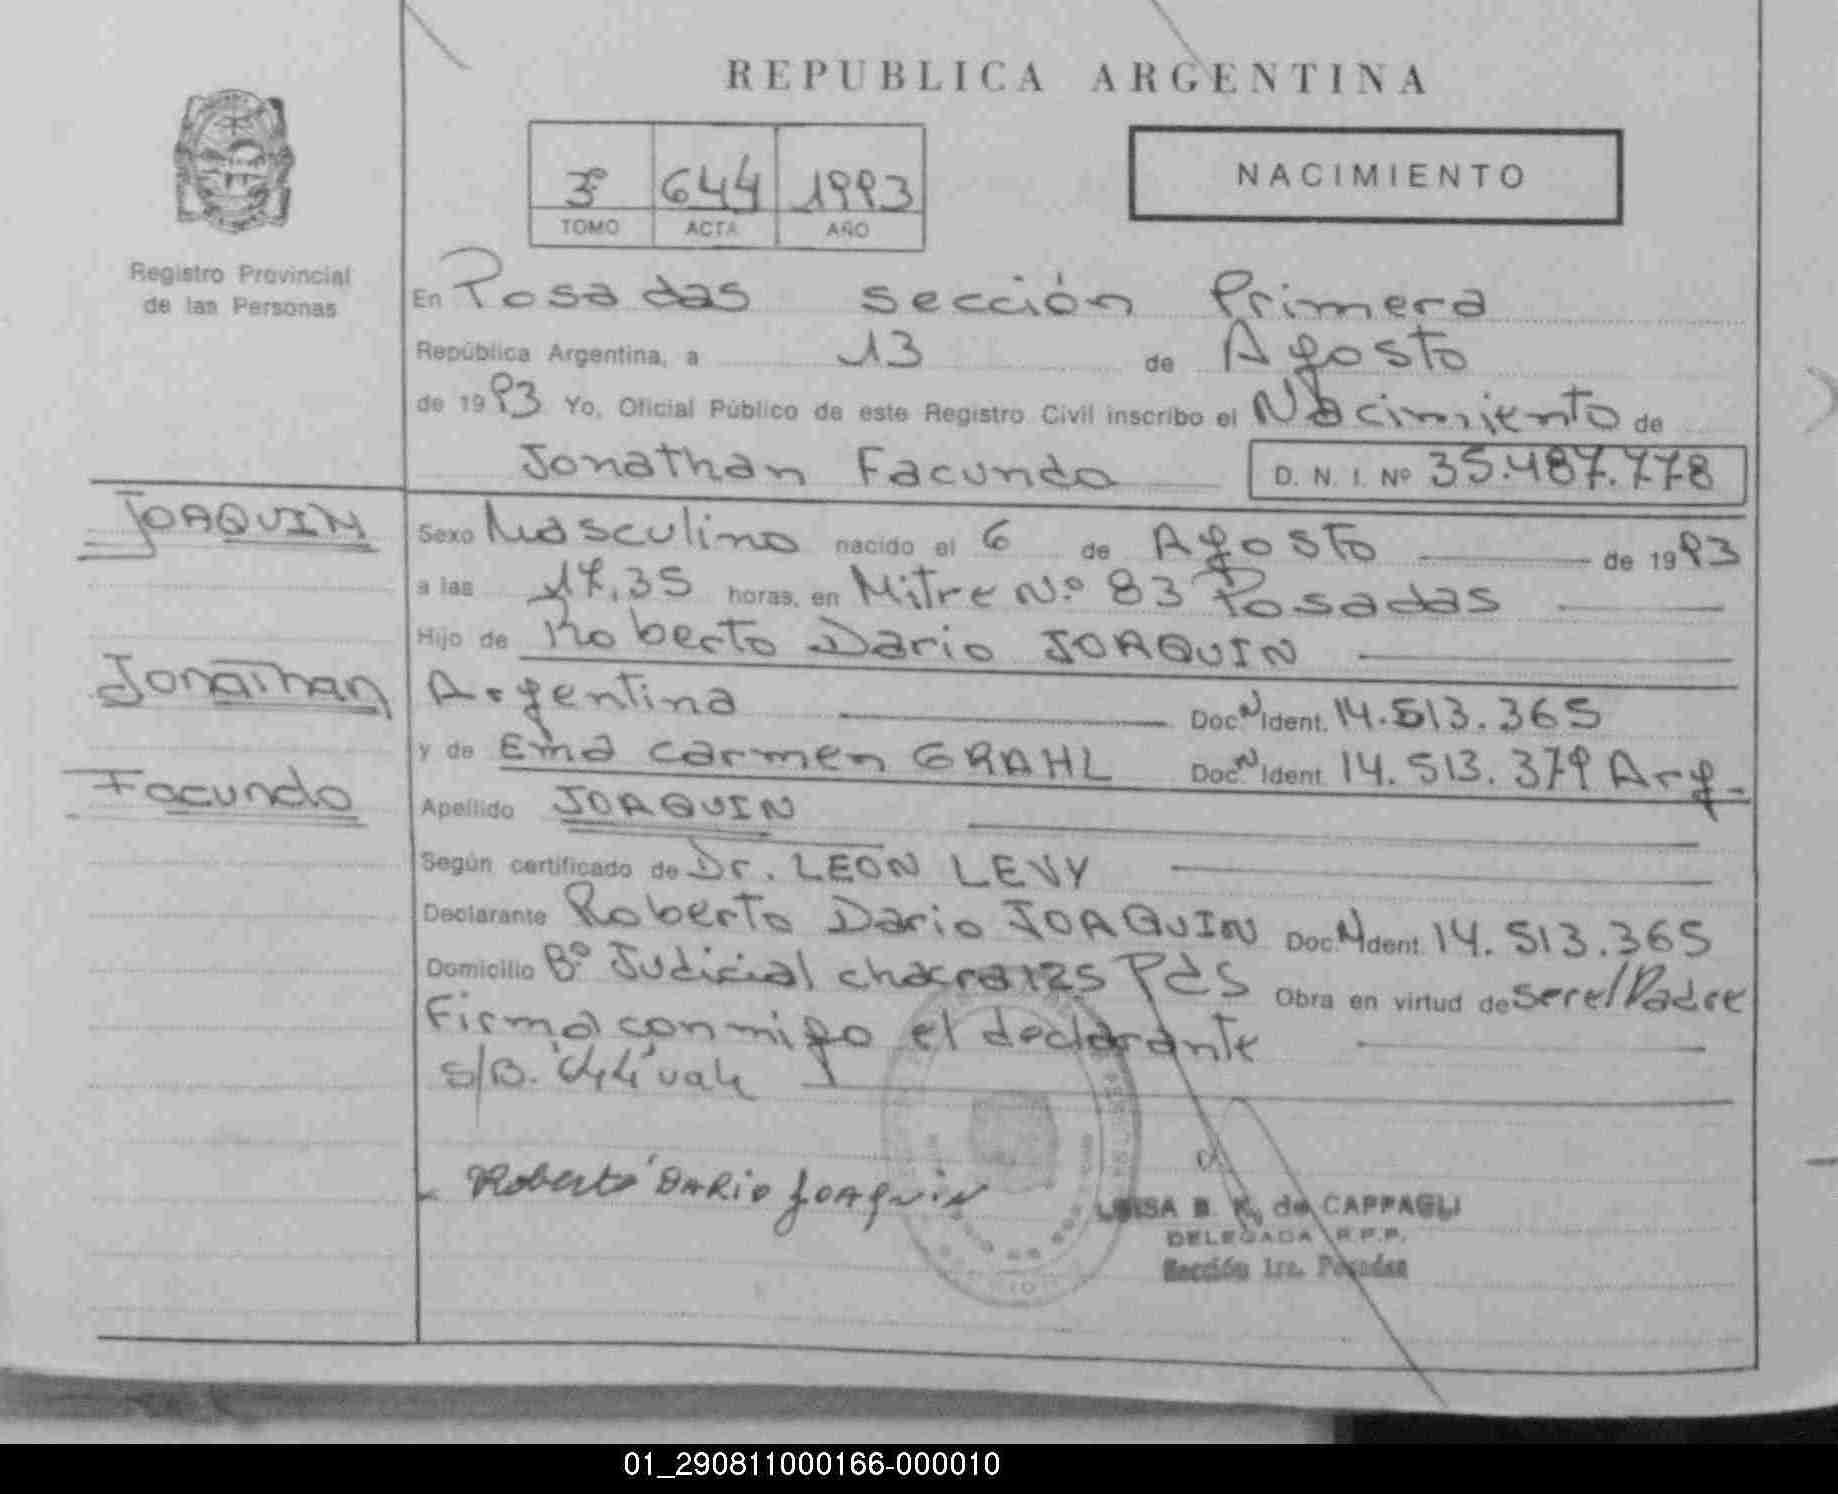 REPUBLICA ARGENTINA
3º 644 1993
TOMO ACTA AÑO
NACIMIENTO
Registro Provincial
de las Personas
En Posadas sección Primera
República Argentina, a 13 de Agosto
de 1993 Yo, Oficial Público de este Registro Civil inscribo el Nacimiento de
Jonathan Facundo D. N. I. Nº 35.487.778
JOAQUIN
Jonathan
Facundo
Sexo Masculino nacido el 6 de Agosto de 1993
a las 17,35 horas, en Mitre Nº 83 Posadas
Hijo de Roberto Dario JOAQUIN
Argentina Doc. N Ident. 14.513.365
y de Ema Carmen GRAHL Doc. N Ident. 14.513.379 Arg.
Apellido JOAQUIN
Según certificado de Dr. LEON LEVY
Declarante Roberto Dario JOAQUIN Doc. N Ident. 14.513.365
Domicilio Bº Judicial chacra 125 Pds Obra en virtud de ser el Padre
Firma conmigo el declarante
S/B. "44" vale
Roberto DARIO JOAQUIN
LUISA B. K. de CAPPAGLI
DELEGADA R.P.P.
Sección 1ra. Posadas
01_290811000166-000010